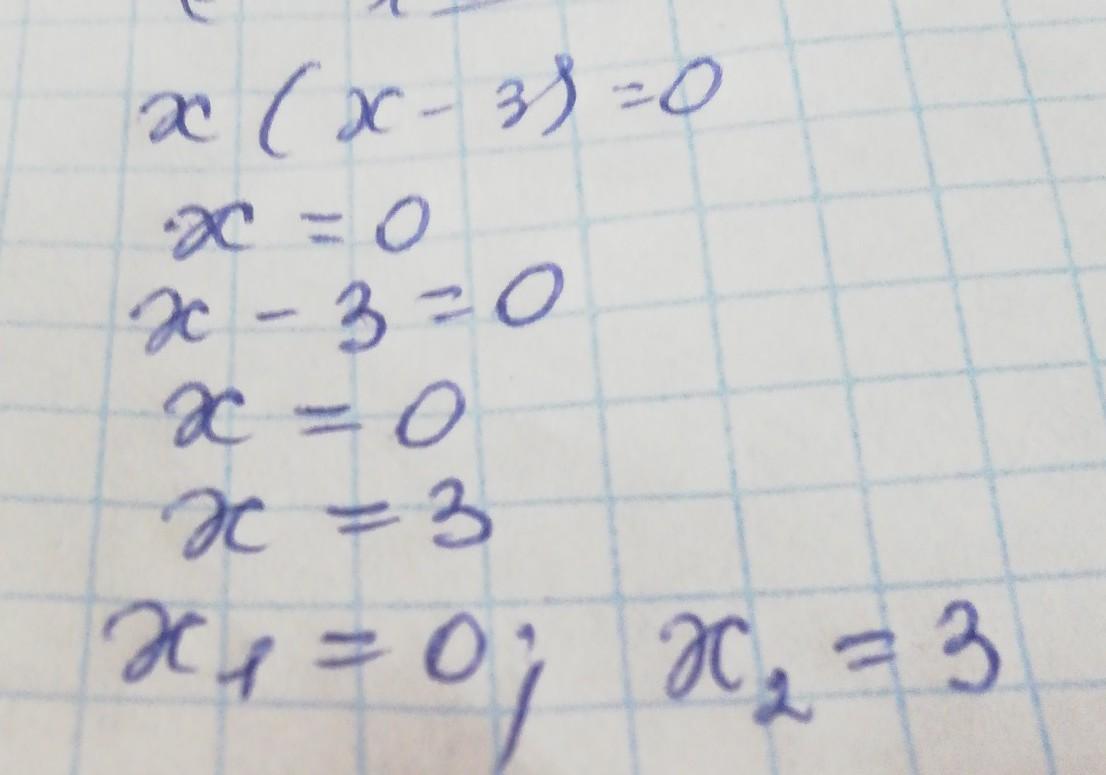 x ( x - 3 ) = 0
x = 0
x - 3 = 0
x = 0
x = 3
x₁ = 0; x₂ = 3